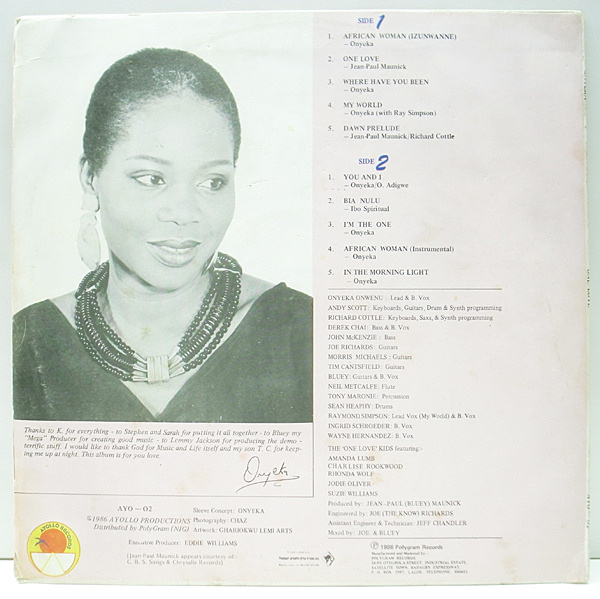 SIDE 1
1. AFRICAN WOMAN (IZUNWANNE)
– Onyeka
2. ONE LOVE
– Jean-Paul Maunick
3. WHERE HAVE YOU BEEN
– Onyeka
4. MY WORLD
– Onyeka (with Ray Simpson)
5. DAWN PRELUDE
– Jean-Paul Maunick/Richard Cottle
SIDE 2
1. YOU AND I
– Onyeka/O. Adigwe
2. BIA NULU
– Ibo Spiritual
3. I'M THE ONE
– Onyeka
4. AFRICAN WOMAN (Instrumental)
– Onyeka
5. IN THE MORNING LIGHT
– Onyeka
ONYEKA ONWENU: Lead & B. Vox
ANDY SCOTT: Keyboards, Guitars, Drum & Synth programming
RICHARD COTTLE: Keyboards, Saxs, & Synth programming
DEREK CHAI: Bass & B. Vox
JOHN McKENZIE: Bass
JOE RICHARDS: Guitars
MORRIS MICHAELS: Guitars
TIM CANTSFIELD: Guitars
BLUEY: Guitars & B. Vox
NEIL METCALFE: Flute
TONY MARONIE: Percussion
SEAN HEAPHY: Drums
RAYMOND SIMPSON: Lead Vox (My World) & B. Vox
INGRID SCHROEDER: B. Vox
WAYNE HERNANDEZ: B. Vox
THE 'ONE LOVE' KIDS featuring:-
AMANDA LUMB
CHARLISE ROOKWOOD
RHONDA WOLF
JODIE OLIVER
SUZIE WILLIAMS
Produced by: JEAN-PAUL (BLUEY) MAUNICK
Engineered by: JOE (THE KNOW) RICHARDS
Assistant Engineer & Technician: JEFF CHANDLER
Mixed by: JOE & BLUEY
Thanks to K. for everything - to Stephen and Sarah for putting it all together - to Bluey my
"Mega" Producer for creating good music - to Lemmy Jackson for producing the demo -
terrific stuff. I would like to thank God for Music and Life itself and my son T. C. for keep-
ing me up at night. This album is for you love.
Onyeka
AYO – 02
©1986 AYOLLO PRODUCTIONS
Distributed by PolyGram (NIG)
Sleeve Concept: ONYEKA
Photography: CHAZ
Artwork: GHARIOKWU LEMI ARTS
Executive Producer: EDDIE WILLIAMS
(Jean-Paul Maunick appears courtesy of:
C. B. S. Songs & Chrysalis Records)
AYOLLO RECORDS
℗ 1986 Polygram Records
Manufactured and Marketed by:-
POLYGRAM RECORDS